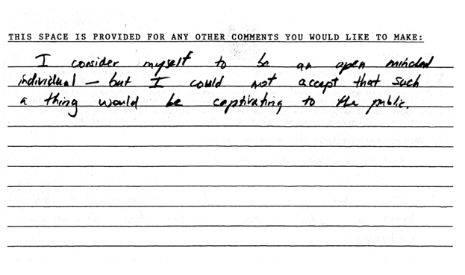 THIS SPACE IS PROVIDED FOR ANY OTHER COMMENTS YOU WOULD LIKE TO MAKE:
I consider myself to be an open minded
individual — but I could not accept that such
a thing would be captivating to the public.